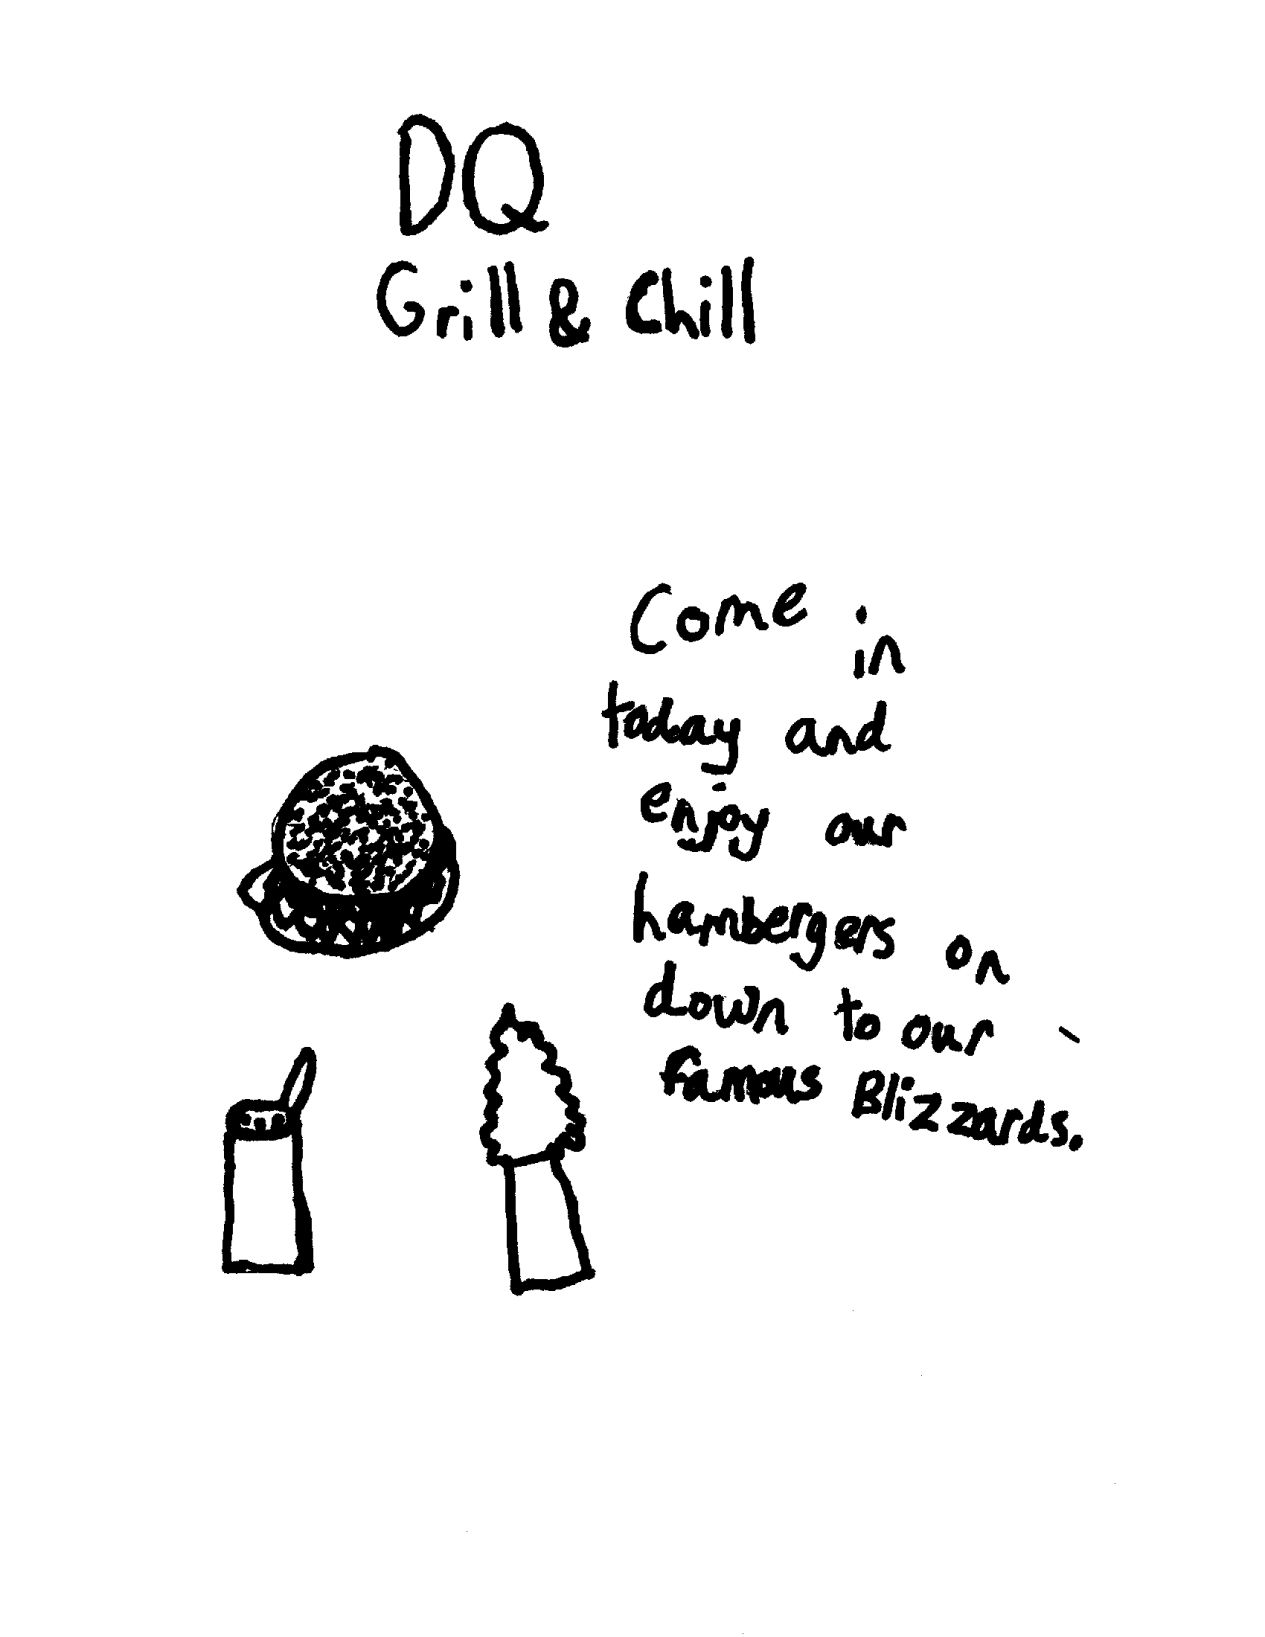 DQ
Grill & Chill
Come in
today and
enjoy our
hambergers on
down to our
famous Blizzards.